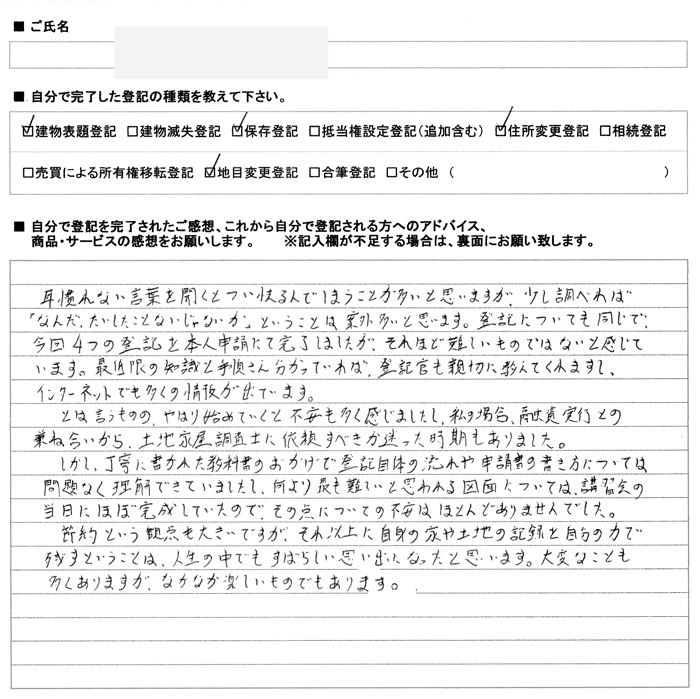 ■ ご氏名
■ 自分で完了した登記の種類を教えて下さい。
☑建物表題登記 □建物滅失登記 ☑保存登記 □抵当権設定登記(追加含む) ☑住所変更登記 □相続登記
□売買による所有権移転登記 ☑地目変更登記 □合筆登記 □その他 ( )
■ 自分で登記を完了されたご感想、これから自分で登記される方へのアドバイス、
商品・サービスの感想をお願いします。 ※記入欄が不足する場合は、裏面にお願い致します。
耳慣れない言葉を聞くとつい怯るんでしまうことが多いと思いますが、少し調べれば
「なんだ、たいしたことないじゃないか」ということは案外多いと思います。登記についても同じで、
今回4つの登記を本人申請にて完了しましたが、それほど難しいものではないと感じて
います。最低限の知識と手順さえ分かっていれば、登記官も親切に教えてくれますし、
インターネットでも多くの情報が出ています。
とは言うものの、やはり始めていくと不安も多く感じましたし、私の場合、融資実行との
兼ね合いから、土地家屋調査士に依頼すべきか迷った時期もありました。
しかし、丁寧に書かれた教科書のおかげで登記自体の流れや申請書の書き方については
問題なく理解できていましたし、何より最も難しいと思われる図面については、講習会の
当日にほぼ完成していたので、その点についての不安はほとんどありませんでした。
節約という観点も大きいですが、それ以上に自身の家や土地の記録を自分の力で
残すということは、人生の中でもすばらしい思い出になったと思います。大変なことも
多くありますが、なかなか楽しいものでもあります。